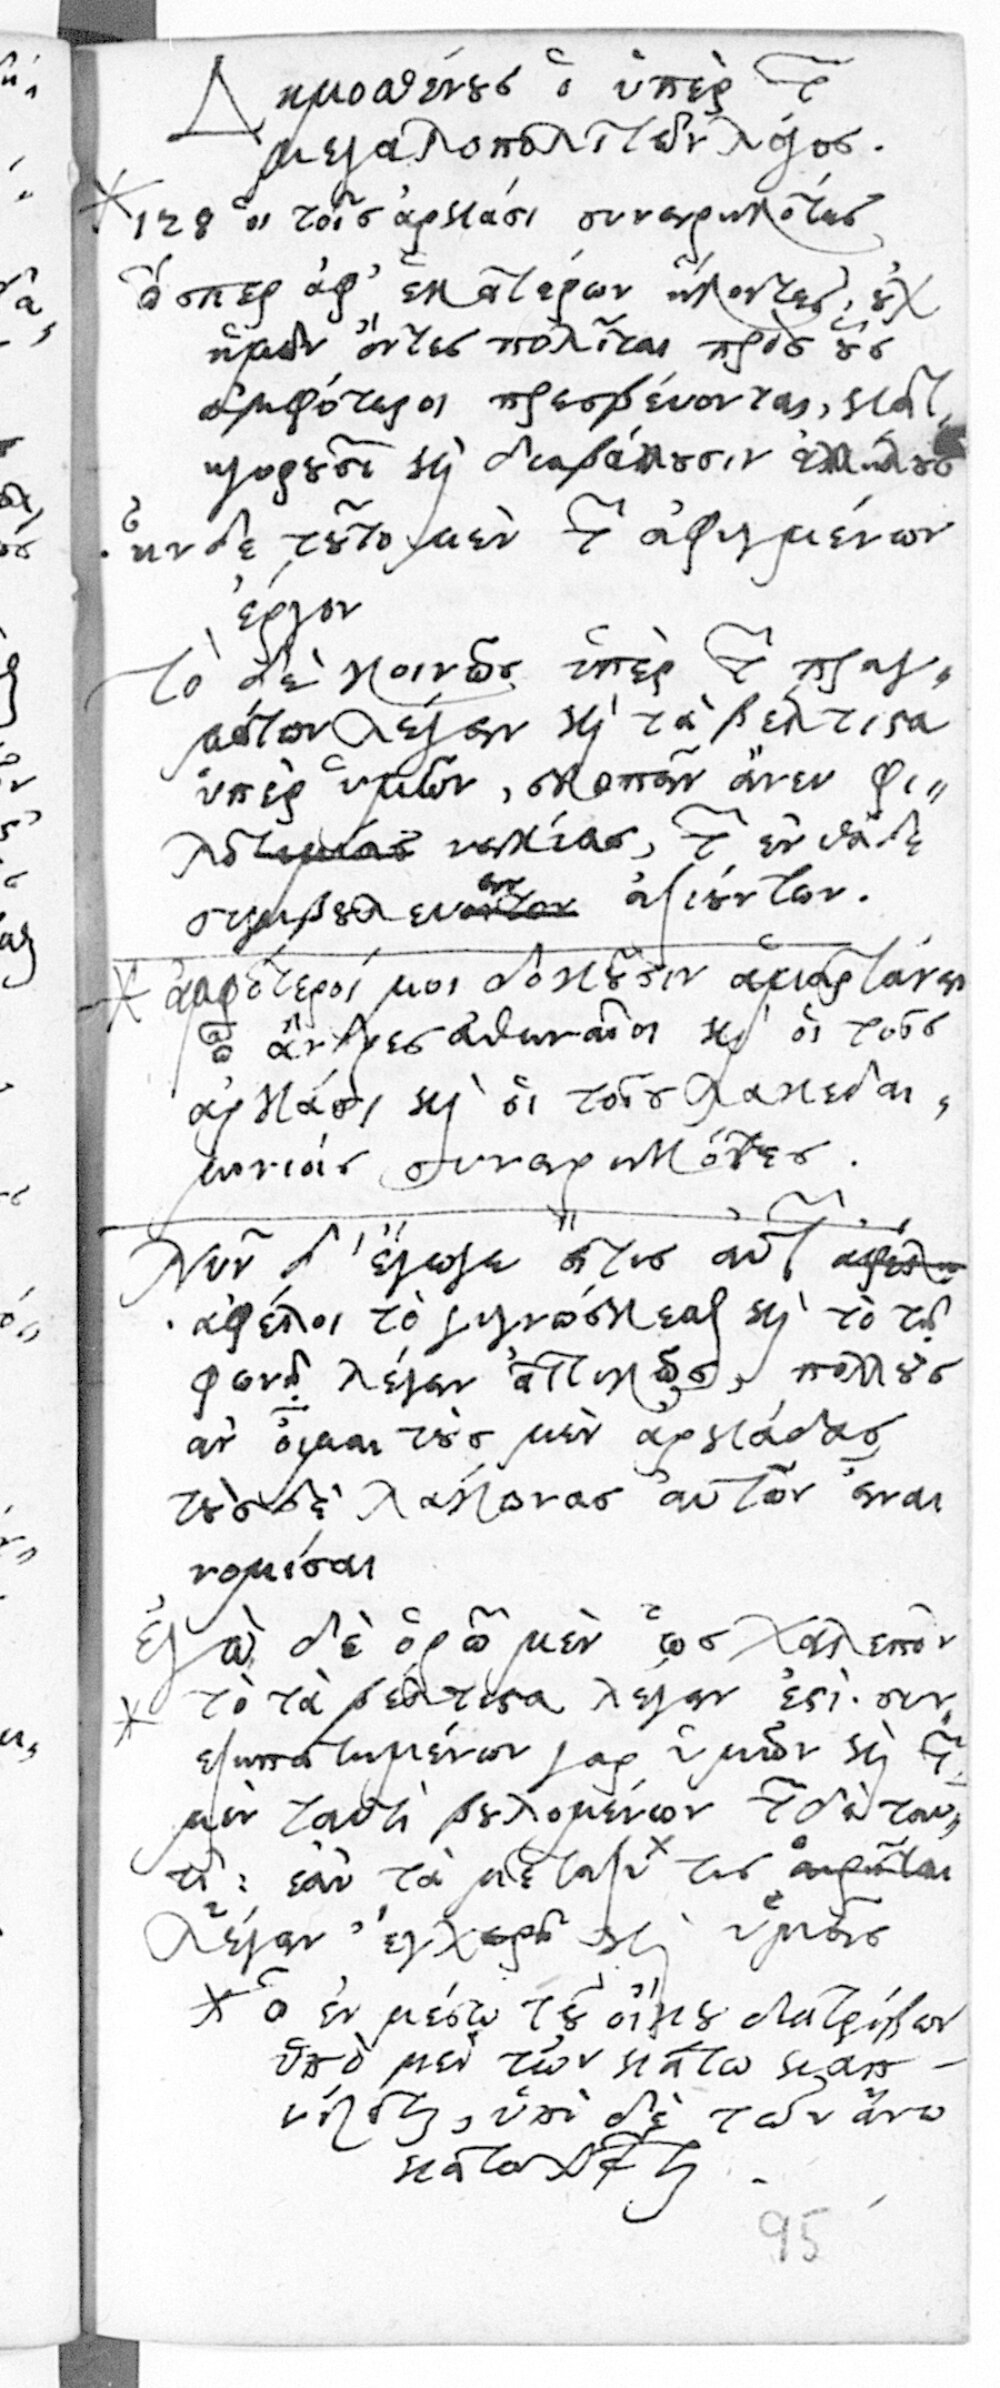 Δημοσθένους ὁ ὑπὲρ τῶν
μεγαλοπολιτῶν λόγος.
128 οἱ τοῖς ἀρκάσι συνειρηκότες
ὥσπερ ἀφ' ἑκατέρων ἥκοντες, οὐχ
ἡμῶν ὄντες πολῖται πρὸς οὓς
ἀμφότεροι πρεσβεύονται, κατ
ηγοροῦσι καὶ διαβάλλουσιν ἀλλήλους
ἦν δε τοῦτο μὲν τῶν ἀφιγμένων
ἔργον
τὸ δὲ κοινῶς ὑπὲρ τῶν πραγ
μάτων λέγειν καὶ τὰ βέλτιστα
ὑπὲρ ὑμῶν, σκοπεῖν ἄνευ φι
λονεικίας, τῶν ἐνθάδε
συμβουλεύειν ἀξιούντων.
ἀμφότεροί μοι δοκοῦσιν ἁμαρτάνειν
ὦ ἄνδρες ἀθηναῖοι καὶ οἱ τοῖς
ἀρκάσι καὶ οἱ τοῖς λακεδαι
μονίοις συνειρηκότες.
Νῦν δ' ἔγωγε εἴ τις αὐτῶν
ἀφέλοι τὸ γιγνώσκεσθαι καὶ τὸ τῇ
φωνῇ λέγειν ἀττικῶς, πολλοὺς
ἂν οἶμαι τοὺς μὲν ἀρκάδας
τοὺς δὲ λάκωνας αὐτῶν εἶναι
νομίσαι
Ἐγὼ δὲ ὁρῶ μὲν ὡς χαλεπὸν
τὸ τὰ βέλτιστα λέγειν ἐστί. συν
εξηπατημένων γαρ ὑμῶν καὶ τῶν
μὲν ταυτὶ βουλομένων τῶν δὲ ταυ
τὶ: ἐὰν τὰ μεταξύ τις
λέγειν ἐγχειρῇ καὶ ὑμεῖς
ὁ ἐν μέσῳ τοῦ οἴκου διατρίβων
ὑπὸ μὲν τῶν κάτω καπ
νίζεται, ὑπὸ δὲ τῶν ἄνω
95